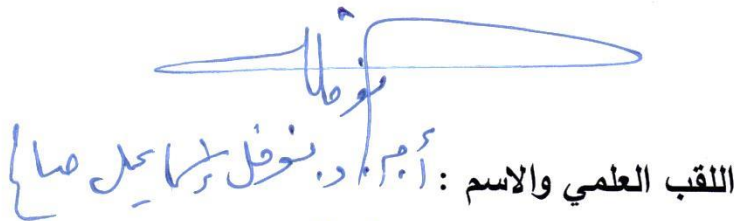 نوفل
اللقب العلمي والاسم : أ.م.د. نوفل إسماعيل صالح